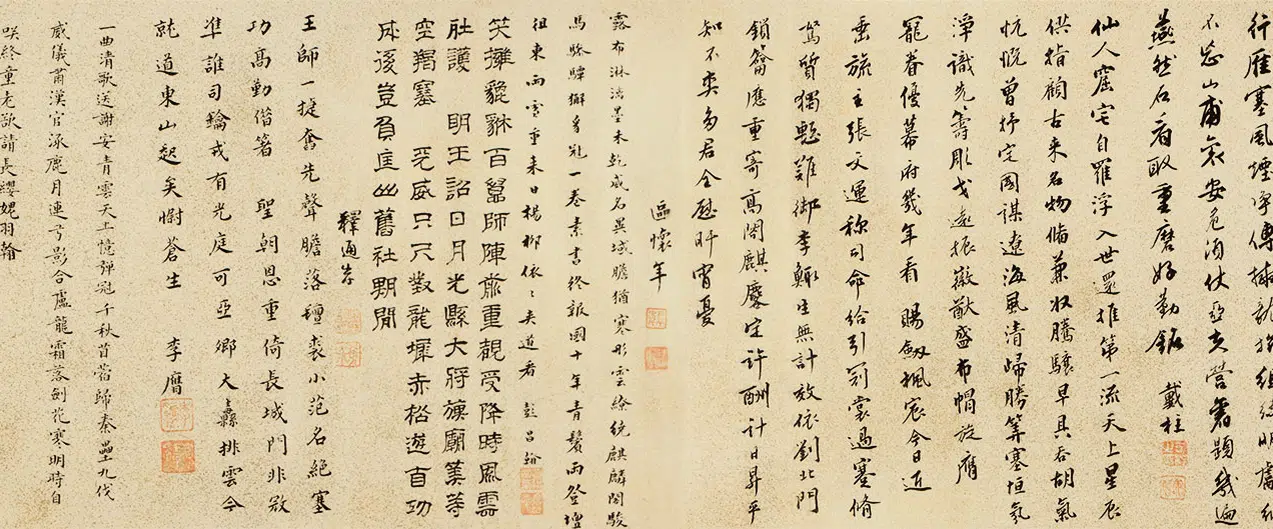 行雁塞風煙淨傳擁龍旌組練明處
不㤀山甫袞安危須仗亞夫營書題幾遍
燕然石看取重磨好勒銘 戴柱
仙人窟宅自羅浮入世還推第一流天上星辰
供指顧古來名物備兼收騰驤早具吞胡氣
忼慨曾抒定國謀遼海風清歸勝筭塞垣氛
淨識先籌彫戈遠振徽猷盛布帽旋膺
寵眷優幕府幾年看 賜劔楓宸今日近
垂旒主張文運称司命給引前裳過塞脩
駑質獨慙難御李鯫生無計效依劉北門
鎖籥應重寄高閣麒麟定許酬計日昇平
知不爽為君全慰旰宵憂
區懷年
露布淋漓墨未乾威名異域膽猶寒形雲繚繞麒麟閣駿
馬驂驔獬豸冠一卷素書終報國十年青鬢兩登壇
祖東雨雪重來日楊柳依〻夾道看 彭昌翰
笑擁貔貅百萬師陣齋重觀受降時風雲
壯護 明王詔日月光縣大將旗廟筭等
空羯塞 天威只尺對龍墀赤松遊自功
成後豈負匡山舊社期閒
釋通岸
王師一捷奮先聲膽落氊裘小范名絕塞
功高勤借箸 聖朝恩重倚長城門非寂
準誰司鑰戎有光庭可亞卿大纛排雲今
就道東山起矣慰蒼生 李膺
一曲清歌送謝安青雲天上憶彈冠千秋首當歸秦壘九伐
威儀肅漢官涿鹿月連弓影合盧龍霜落劍花寒明時自
咲終童老欲請長纓媿羽翰